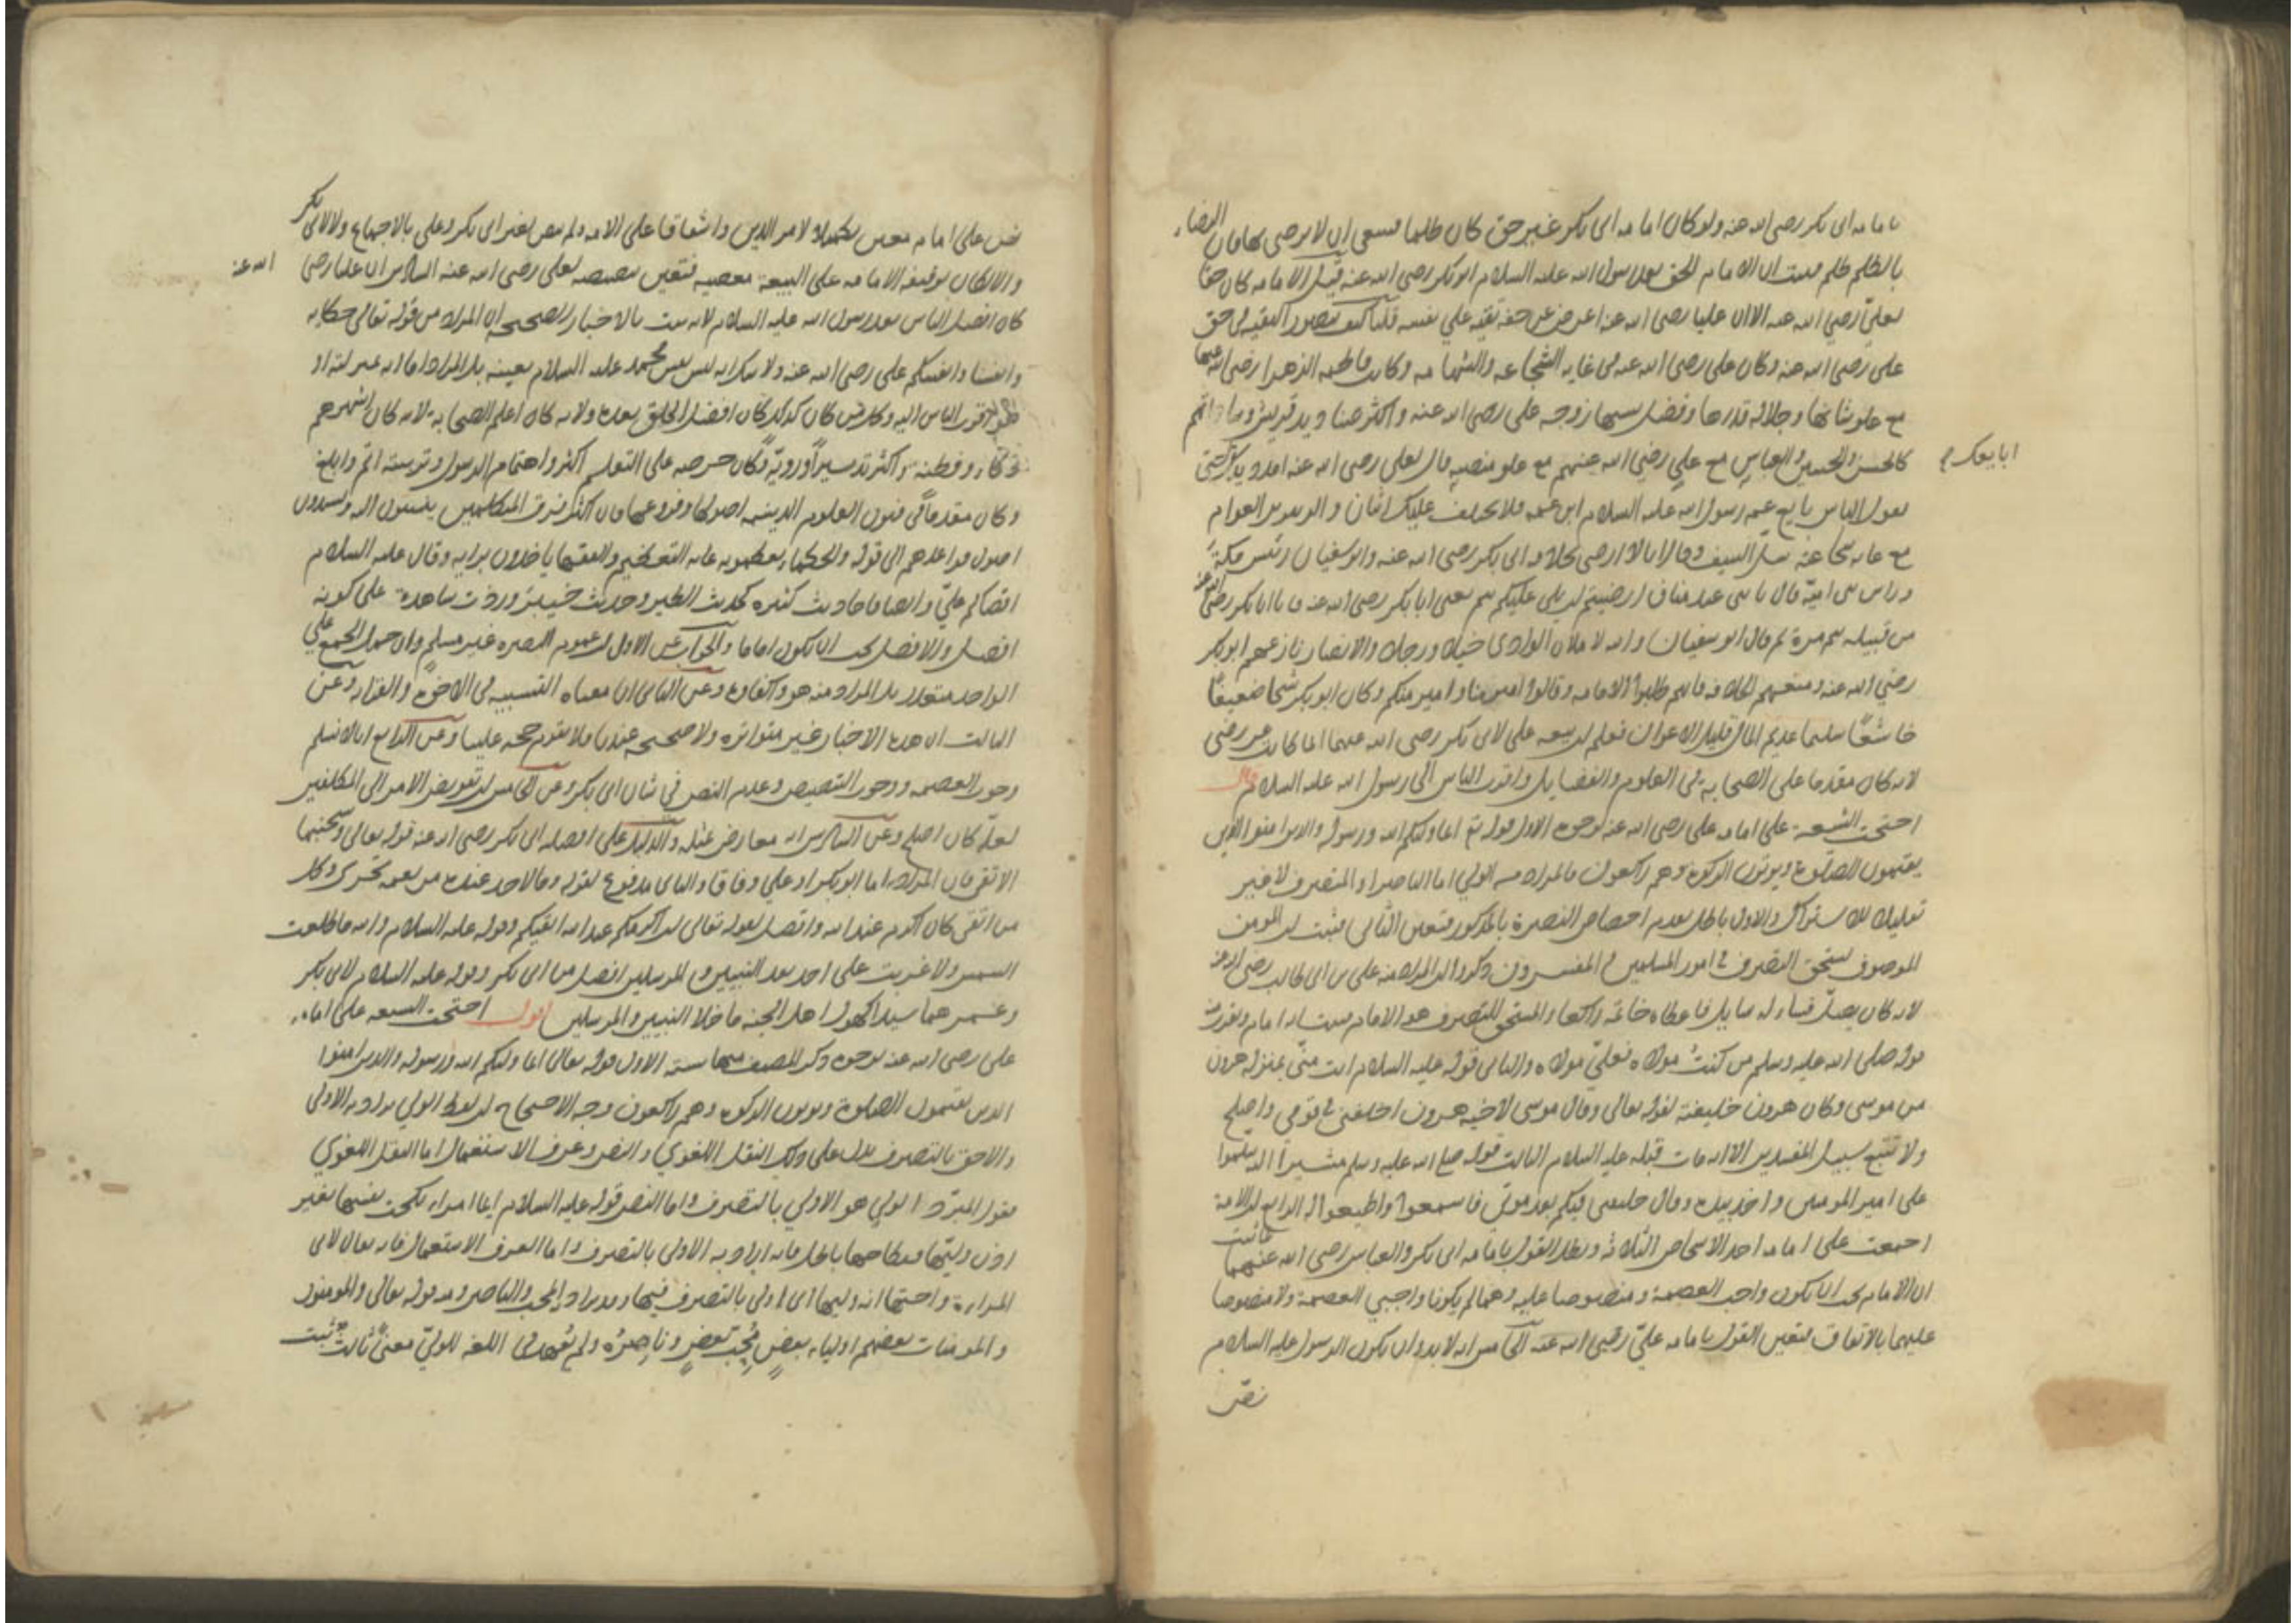 بامامه ابى بكر رضى الله عنه ولو كان امامه ابى بكر غير حق كان ظلما فينبغى ان لا يرضى بها فان الرضاء
بالظلم ظلم فثبت ان الامام الحق بعد رسول الله عليه السلام ابو بكر رضى الله عنه قيل الامامه كان حقا
لعلى رضي الله عنه الا ان عليا رضى الله عنه اعرض عن حقه تقية على نفسه قلنا كيف تتصور التقيه فى حق
على رضى الله عنه وكان على رضى الله عنه فى غايه الشجاعه والشهامه وكانت فاطمه الزهرا رضى الله عنها
مع علو شانها وجلاله قدرها وفضل نسبها زوجه على رضى الله عنه واكثر صناديد قريش وساداتهم
كالحسن والحسين والعباس مع علي رضي الله عنهم مع علو منصبه قال لعلى رضى الله عنه امدد يدك حتى
ابايعك
يقول الناس بايع عم رسول الله عليه السلام ابن عمه فلا يختلف عليك اثنان والزبير بن العوام
مع غايه شجاعته سل السيف وقال لا ارضى بخلافه ابى بكر رضى الله عنه وابو سفيان رئيس مكة
وراس بنى امية قال يا بنى عبد مناف ارضيتم ان يلى عليكم تيم يعنى ابا بكر رضى الله عنه فان ابا بكر رضى الله عنه
من قبيله تيم بن مرة ثم قال ابو سفيان والله لاملان الوادى خيلا ورجلا والانصار نازعهم ابو بكر
رضي الله عنه ومنعهم الخلافه فانهم طلبوا الامامه وقالوا امير منا وامير منكم وكان ابو بكر شيخا ضعيفا
خاشعا سليما عديم المال قليل الاعوان فعلم ان بيعه على لابى بكر رضى الله عنهما انما كانت عن رضى
لانه كان مقدما على الصحابه فى العلوم والفضايل واقرب الناس الى رسول الله عليه السلام قال
احتجت الشيعه على امامه على رضى الله عنه بوجوه الاول قوله تع انما وليكم الله ورسوله والذين امنوا الذين
يقيمون الصلوة ويوتون الزكوة وهم راكعون فالمراد من الولي اما الناصر او المتصرف لا غير
تقليلا للاشتراك والاول باطل لعدم اختصاص النصرة بالمذكور فتعين الثانى فثبت ان المومن
الموصوف يستحق التصرف فى امور المسلمين والمفسرون ذكروا ان المراد منه على بن ابى طالب رضى الله عنه
لانه كان يصلى فساله سايل فاعطاه خاتمه راكعا والمستحق للتصرف هو الامام فثبت انه امام وتقرب منه
قوله صلى الله عليه وسلم من كنت مولاه فعلي مولاه والثانى قوله عليه السلام انت مني بمنزله هرون
من موسى وكان هرون خليفته لقوله تعالى وقال موسى لاخيه هرون اخلفنى فى قومي واصلح
ولا تتبع سبيل المفسدين الا انه مات قبله عليه السلام الثالث قوله صلى الله عليه وسلم مشيرا اليه سلموا
على امير المومنين واخذ بيده وقال خليفتى فيكم بعد موتى فاسمعوا واطيعوا له الرابع ان الامة
اجمعت على امامه احد الاشخاص الثلاثه وبطل القول بامامه ابى بكر والعباس رضى الله عنهما لما ثبت
ان الامام يجب ان يكون واجب العصمة ومنصوصا عليه وهما لم يكونا واجبي العصمة ولا منصوصا
عليهما بالاتفاق فتعين القول بامامه علي رضى الله عنه الخامس انه لابد وان يكون الرسول عليه السلام
نص
نص على امام معين تكميلا لامر الدين واشفاقا على الامه ولم ينص لغير ابى بكر وعلى بالاجماع ولا لابى بكر
والا لكان توقيفه الامامه على البيعة معصيه فتعين تنصيصه لعلى رضى الله عنه السادس ان عليا رضى الله عنه
كان افضل الناس بعد رسول الله عليه السلام لانه ثبت بالاخبار الصحيحه ان المراد من قوله تعالى حكايه
وانفسنا وانفسكم على رضى الله عنه ولا شك انه ليس نفس محمد عليه السلام بعينه بل المراد اما انه بمنزلته او
هو اقرب الناس اليه وكل من كان كذلك كان افضل الخلق بعده ولانه كان اعلم الصحابه لانه كان اشهرهم
ذكاء وفطنه واكثر تدبيرا وروية وكان حرصه على التعلم اكثر واهتمام الرسول وتربيته اتم وابلغ
وكان مقدما فى فنون العلوم الدينيه اصولها وفروعها فان اكثر فرق المتكلمين ينتسبون اليه ويسندون
اصول قواعدهم الى قوله والحكماء يعظمونه غايه التعظيم والفقها ياخذون برايه وقال عليه السلام
اقضاكم علي وايضا فاحاديث كثيره كحديث الطير وحديث خيبر وردت شاهدة على كونه
افضل والافضل يجب ان يكون اماما والجواب عن الاول ان عموم النصره غير مسلم وان حمل الجمع على
الواحد متعذر بل المراد منه هو واكفاوه وعن الثانى ان معناه التشبيه فى الاخوة والقرابه وعن
الثالث ان هذه الاخبار غير متواتره ولا صحيحه عندنا فلا تقوم حجه علينا وعن الرابع انا لا نسلم
وجوب العصمه ووجوب التنصيص وعدم النص في شان ابى بكر وعن الخامس ان تفويض الامر الى المكلفين
لعله كان اصلح وعن السادس انه معارض بمثله والدليل على افضليه ابى بكر رضى الله عنه قوله تعالى وسيجنبها
الاتقى فان المراد اما ابو بكر او علي وفاقا والثانى مدفوع لقوله وما لاحد عنده من نعمه تجزى وكل
من اتقى كان اكرم عند الله وافضل لقوله تعالى ان اكرمكم عند الله اتقيكم وقوله عليه السلام والله ما طلعت
الشمس ولا غربت على احد بعد النبيين والمرسلين افضل من ابى بكر وقوله عليه السلام لابى بكر
وعمر هما سيدا كهول اهل الجنه ما خلا النبيين والمرسلين اقول احتجت الشيعه على امامه
على رضى الله عنه بوجوه ذكر المصنف منها سته الاول قوله تعالى انما وليكم الله ورسوله والذين امنوا
الذين يقيمون الصلوة ويوتون الزكوة وهم راكعون وجه الاحتجاج ان لفظ الولي يراد به الاولى
والاحق بالتصرف يدل على ذلك النقل اللغوي والنص وعرف الاستعمال اما النقل اللغوي
فقول المبرد الولي هو الاولي بالتصرف واما النص قوله عليه السلام ايما امراه نكحت نفسها بغير
اذن وليها فنكاحها باطل فانه اراد به الاولى بالتصرف واما العرف الاستعمال فانه يقال لابى
المراءة واختها انه وليها اى اولى بالتصرف فيها وقد يراد به المحب والناصر ومنه قوله تعالى والمومنون
والمومنات بعضهم اولياء بعض اى محب بعض وناصره ولم يعهد فى اللغه للولي معنى ثالث ثبت